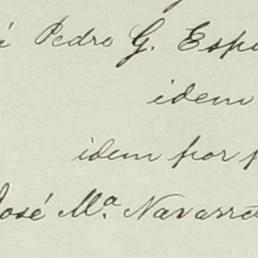 á Pedro G. Esp
idem
idem por p
José Mª Navarre